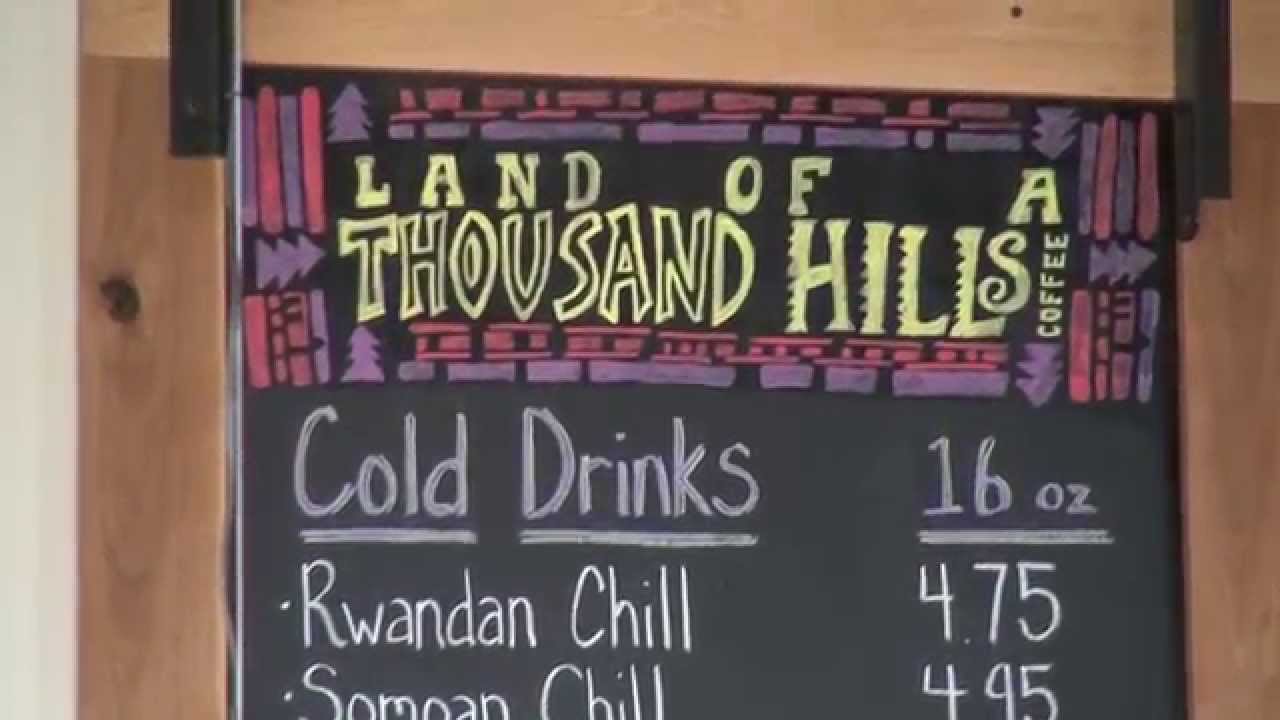 LAND OF A
THOUSAND HILLS
COFFEE
Cold Drinks 16 oz
·Rwandan Chill 4.75
·Somoan Chill 4.95